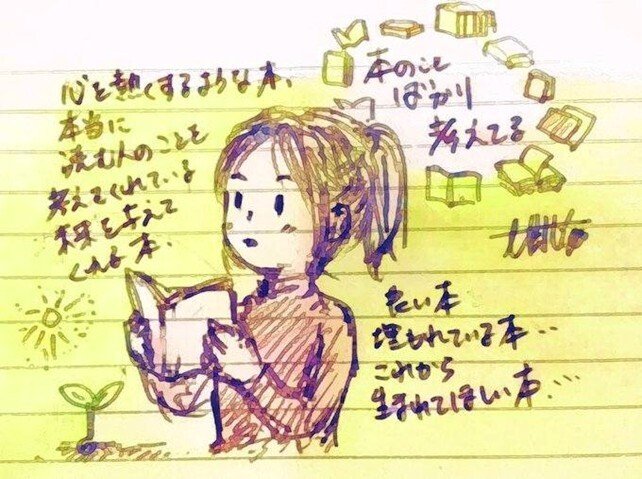 心を熱くするような本、
本当に
読む人のことを
考えてくれている
未来を与えて
くれる本、
本のこと
ばかり
考えてる
たい本
埋もれている本‥
これから
生まれてほしい本…